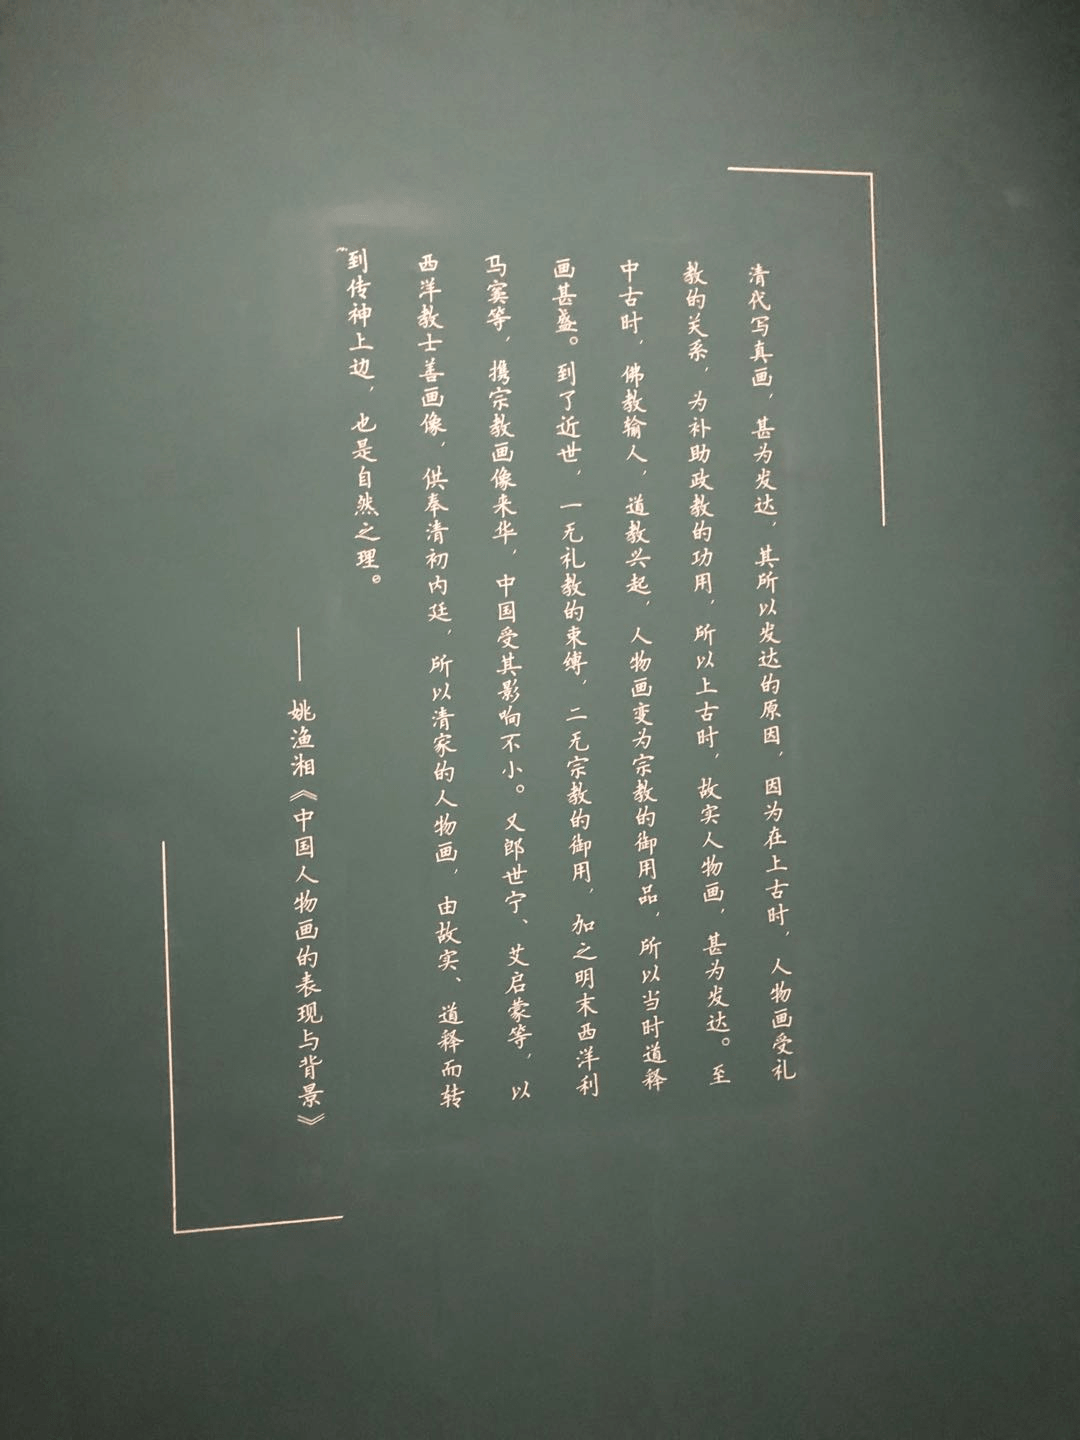 清代写真画，甚为发达，其所以发达的原因，因为在上古时，人物画受礼
教的关系，为补助政教的功用，所以上古时，故实人物画，甚为发达。至
中古时，佛教输人，道教兴起，人物画变为宗教的御用品，所以当时道释
画甚盛。到了近世，一无礼教的束缚，二无宗教的御用，加之明末西洋利
马窦等，携宗教画像来华，中国受其影响不小。又郎世宁、艾启蒙等，以
西洋教士善画像，供奉清初内廷，所以清家的人物画，由故实、道释而转
到传神上边，也是自然之理。
——姚渔湘《中国人物画的表现与背景》